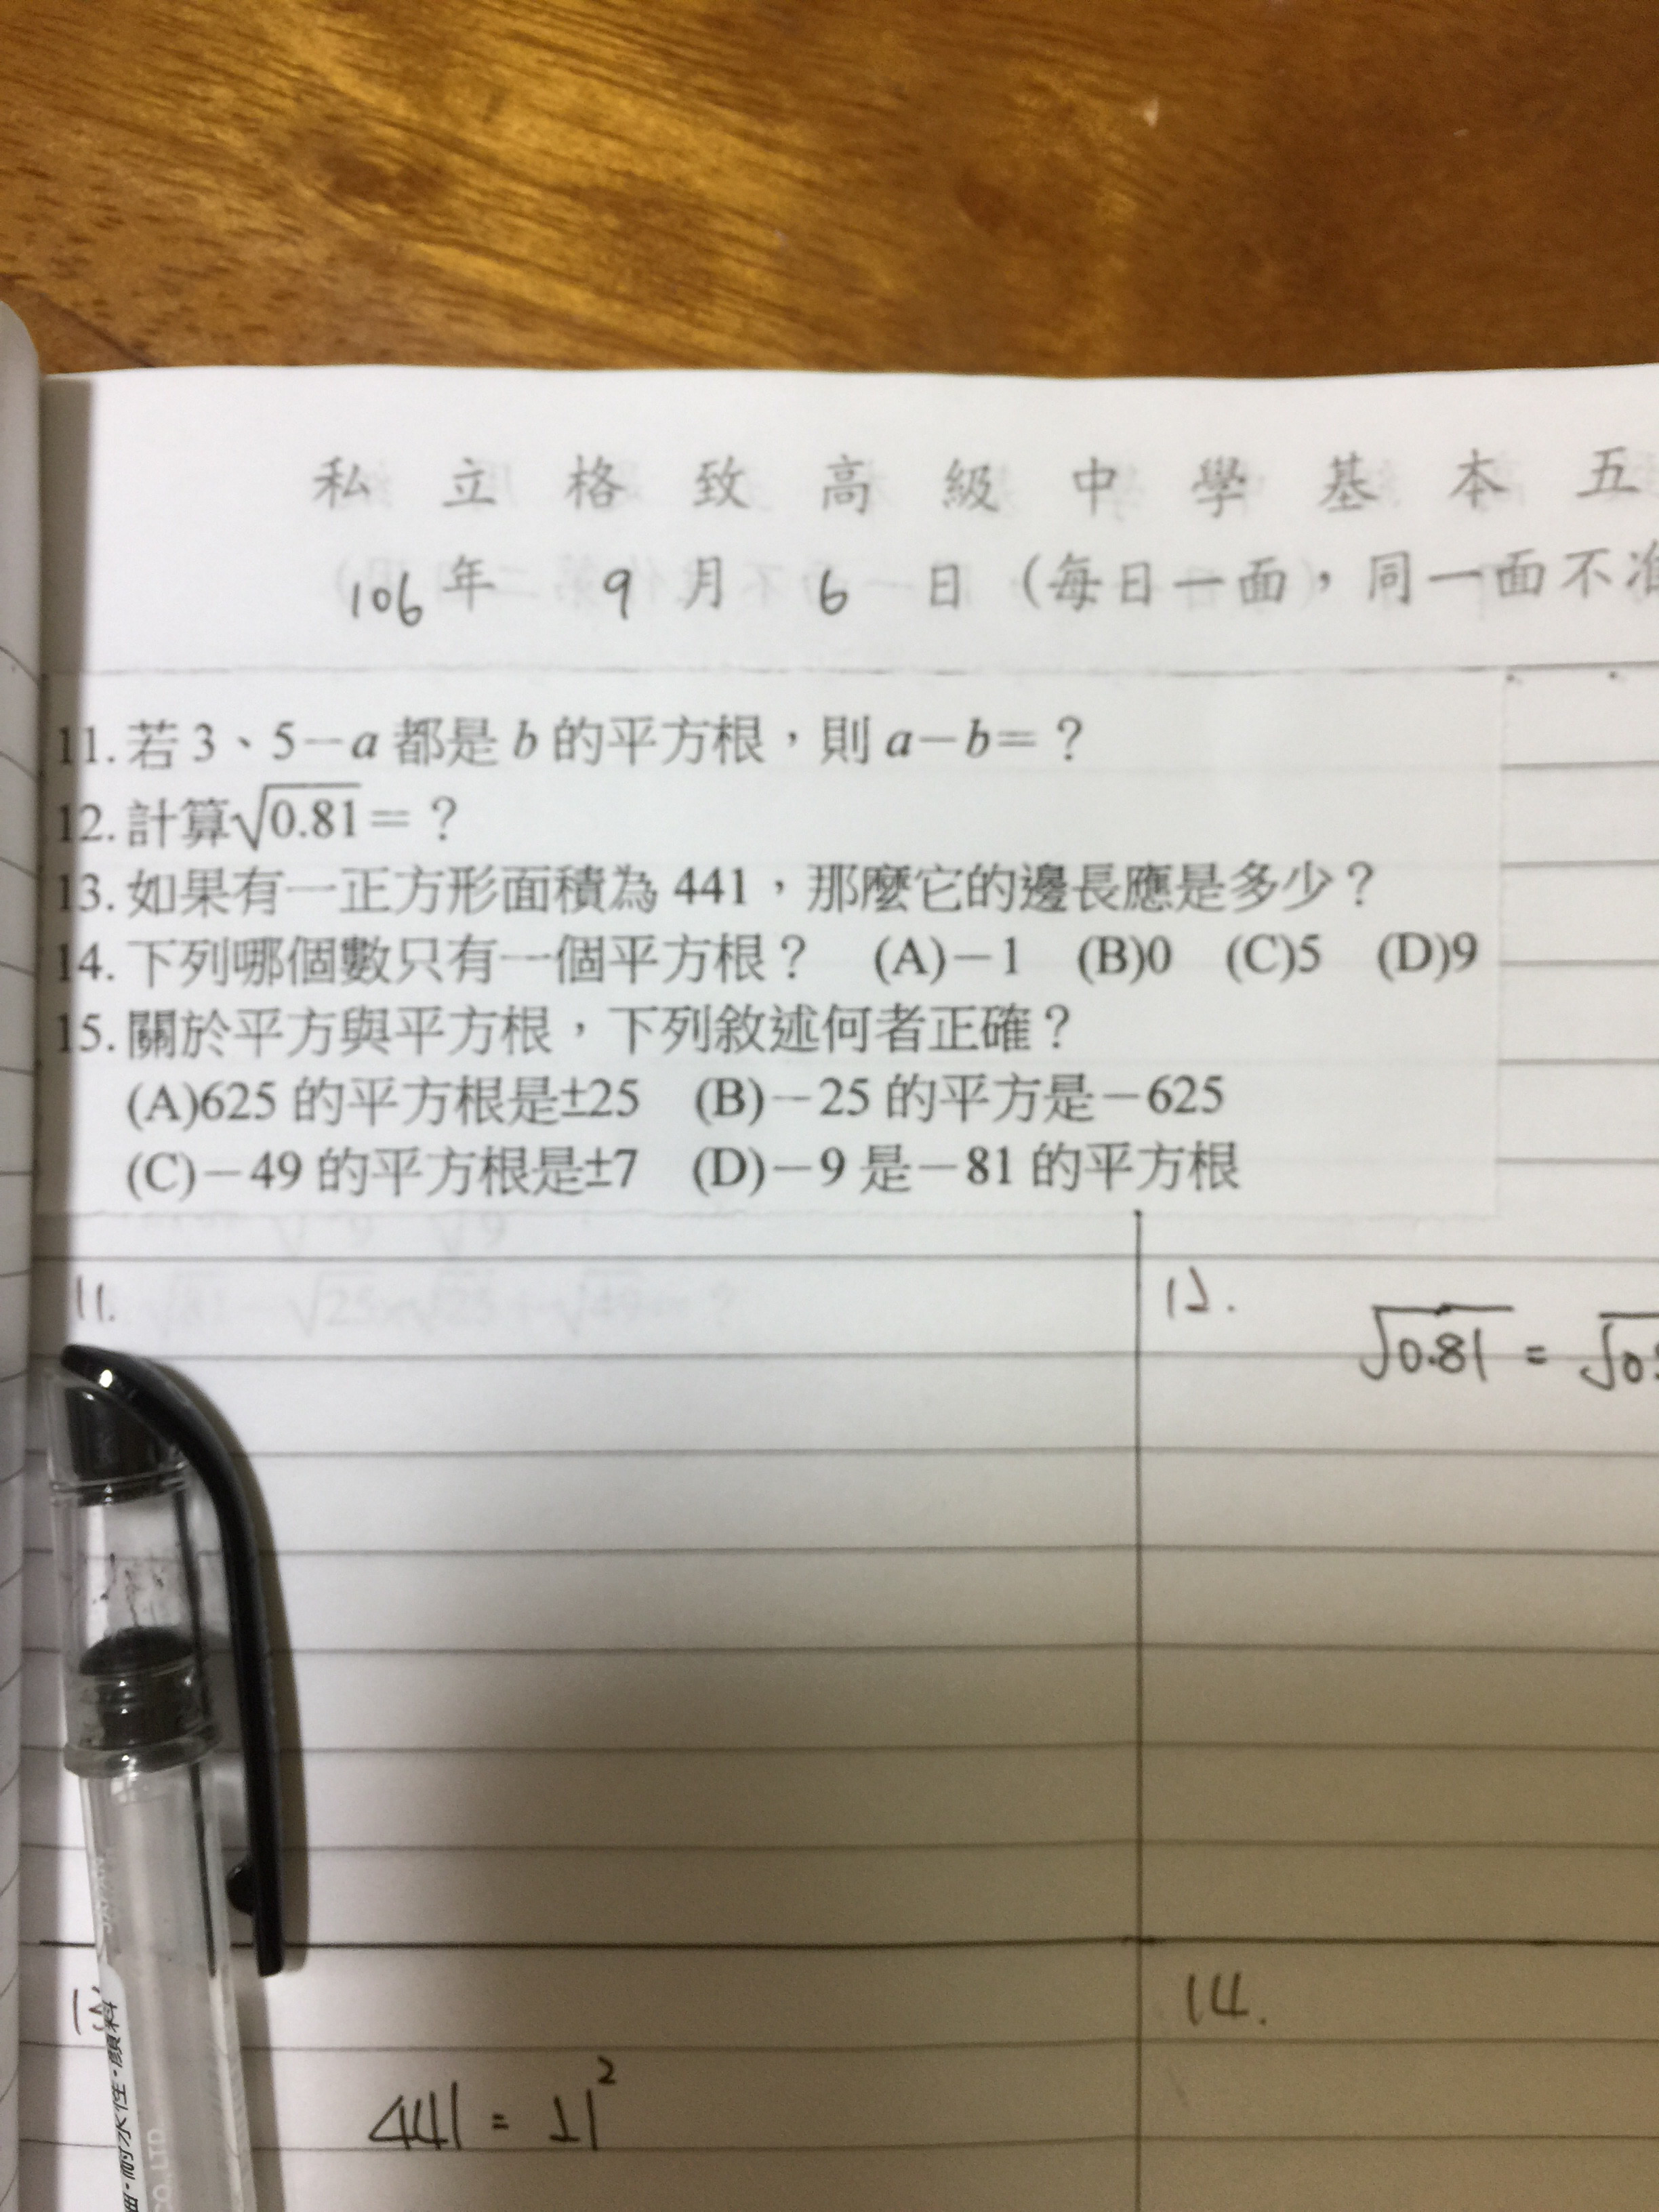 私立格致高級中學基本五
106年 9月 6日(每日一面,同一面不准
11. 若 3、5-a 都是 b 的平方根,則 a-b=?
12. 計算√0.81=?
13. 如果有一正方形面積為 441,那麼它的邊長應是多少?
14. 下列哪個數只有一個平方根? (A)-1 (B)0 (C)5 (D)9
15. 關於平方與平方根,下列敘述何者正確?
(A)625 的平方根是±25 (B)-25 的平方是-625
(C)-49 的平方根是±7 (D)-9 是-81 的平方根
11.
12.
√0.81 = √0.
13
14.
441 = 21²
油·耐水性·顏料
JAPAN
CO.,LTD